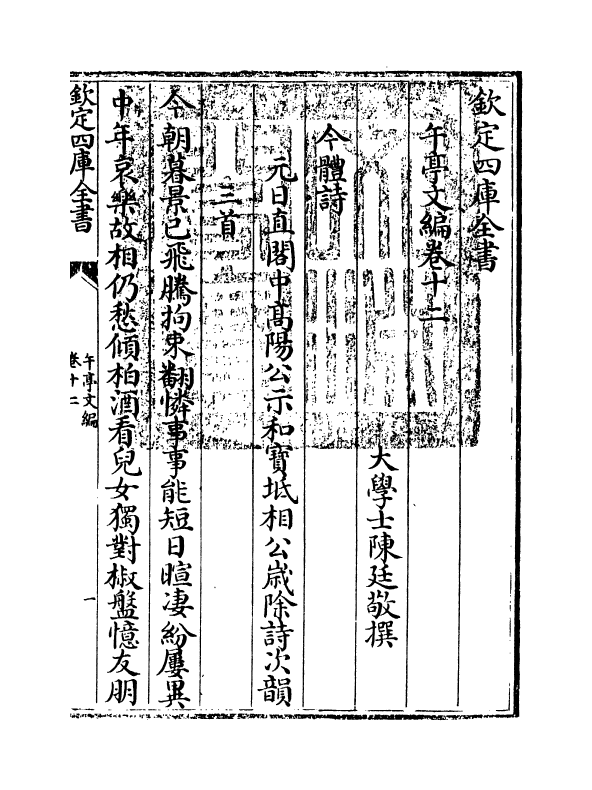 欽定四庫全書
午亭文編卷十二
大學士陳廷敬撰
今體詩
元日直閣中高陽公示和寶坻相公歲除詩次韻
三首
今朝暮景已飛騰拘束翻憐事事能短日暄凄紛屢異
中年哀樂故相仍愁傾柏酒看兒女獨對椒盤憶友朋
欽定四庫全書
午亭文編
卷十二
一